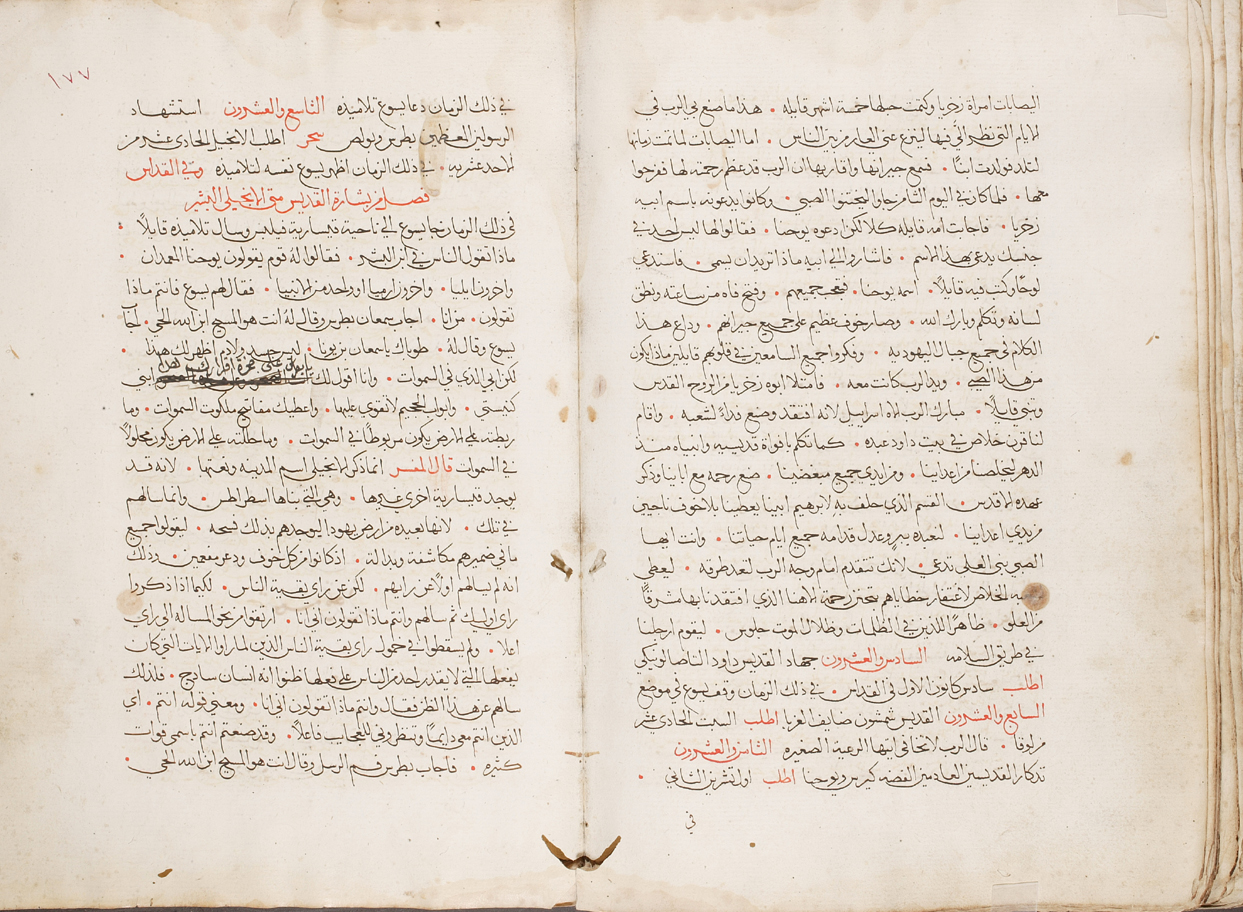 اليصابات امراة زخريا وكتمت حبلها خمسة اشهر قايله • هذا ما صنع بي الرب في
الايام التي نظر الي فيها لينزع عني العار من بين الناس • اما اليصابات لما تمت زمانها
لتلد فولدت ابنًا • فسمع جيرانها واقاربها ان الرب قد عظم رحمته لها ففرحوا
معها • فلما كان في اليوم الثامن جاوا ليختنوا الصبي • وكانوا يدعونه باسم ابيه
زخريا • فاجات امه قايله كلا لكن ادعوه يوحنا • فقالوا لها ليس احد في
جنسك يدعى بهذا الاسم • فاشاروا الى ابيه ماذا تريد ان يسمى • فاستدعى
لوحًا وكتب فيه قايلاً • اسمه يوحنا • فعجب جميعهم • وفتح فاه من ساعته ونطق
لسانه وتكلم وبارك الله • وصار خوف عظيم على جميع جيرانهم • وذاع هذا
الكلام في جميع جبال اليهوديه • وفكروا جميع السامعين في قلوبهم قايلين ماذا يكون
من هذا الصبي • ويد الرب كانت معه • فامتلا ابوه زخريا من الروح القدس
وتنبى قايلاً • مبارك الرب اله اسراييل لانه افتقد وصنع فداءً لشعبه • واقام
لنا قرن خلاص في بيت داود عبده • كما تكلم بافواه قديسيه وانبياه منذ
الدهر ليخلصنا من اعداينا • ومن ايدي جميع مبغضينا • صنع رحمه مع اباينا وذكر
عهده المقدس • القسم الذي حلف به لابرهيم ابينا يعطينا بلا خوف ناجيين
من يدي اعداينا • لنعبده ببر وعدل قدامه جميع ايام حياتنا • وانت ايها
الصبي نبي العلى تدعى • لانك تتقدم امام وجه الرب لتعد طرقه • ليعطي
الخلاص لاغتفار خطاياهم بتحنن رحمة الاهنا الذي افتقدنا بها مشرقًا
من العلو • ظاهرًا للذين في الظلمات وظلال الموت جلوس • ليقوم ارجلنا
في طريق السلامه السادس والعشرون جهاد القديس داود الناصالونيكي
اطلب سادس كانون الاول في القداس • في ذلك الزمان وقف يسوع في موضع
السابع والعشرون القديس شمشون ضايف الغربا اطلب السبت الحادي عشر
من لوقا • قال الرب لا تخافي ايتها الرعية الصغيره الثامن والعشرون
تدكار القديسين العادمين الفضه كيرس ويوحنا اطلب اول تشرين الثاني •
في
١٧٧
في ذلك الزمان دعا يسوع تلاميذه التاسع والعشرون استشهاد
الرسولين العظيمين بطرس وبولص سحر اطلب الانجيل الحادي عشر من
الاحد عشريه • في ذلك الزمان اظهر يسوع نفسه لتلاميذه وفي القداس
فصل من بشارة القديس متى الانجيلي البشير
في ذلك الزمان جا يسوع الى ناحية قيسارية فيلبس وسال تلاميذه قايلاً •
ماذا تقول الناس في ابن البشر • فقالوا له قوم يقولون يوحنا المعمدان •
واخرون ايليا • واخرون ارميا او واحد من الانبيا • فقال لهم يسوع فانتم ماذا
تقولون • من انا • اجاب سمعان بطرس وقال لهُ انت هو المسيح ابن الله الحي • اجاب
يسوع وقال لهُ • طوباك يا سمعان بن يونا • ليس جسد ولا دم اظهر لك هذا •
لكن ابي الذي في السموات • وانا اقول لك ابني
كنيستي • وابواب الجحيم لا تقوى عليها • واعطيك مفاتيح ملكوت السموات • وما
ربطته على الارض يكون مربوطًا في السموات • وما حللته على الارض يكون محلولاً
في السموات قال المفسر انما ذكر الانجيلي اسم المدينه ونعتها • لانه قد
يوجد قيسارية اخرى غيرها • وهي التي بناها اسطراطس • وانما سالهم
في تلك • لانها بعيده من ارض يهودا ليوجدهم بذلك فسحه • ليقولوا جميع
ما في ضميرهم مكاشفة وبدالة • اذ كانوا من كل خوف ودعر مفعمين • وذلك
انه لم يسالهم اولاً عن رايهم • لكن عن راي بقية الناس • لكيما اذا ذكروا
راي اوليك ثم سالهم وانتم ماذا تقولون اني انا • ارتقوا من نحو المساله الى راي
اعلا • ولم يسقطوا في خمول راي بقية الناس الذين لما راوا الايات التي كان
يفعلها التي لا يقدر احد من الناس على فعلها ظنوا انه انسان سادج • فلذلك
سالهم عن هذا الظن فقال وانتم ماذا تقولون اني انا • ومعنى قوله انتم • اي
الذين انتم معي دايمًا وتنظروني للعجايب فاعلاً • وقد صنعتم انتم باسمي قوات
كثيره • فاجاب بطرس فم الرسل وقال انت هو المسيح ابن الله الحي •